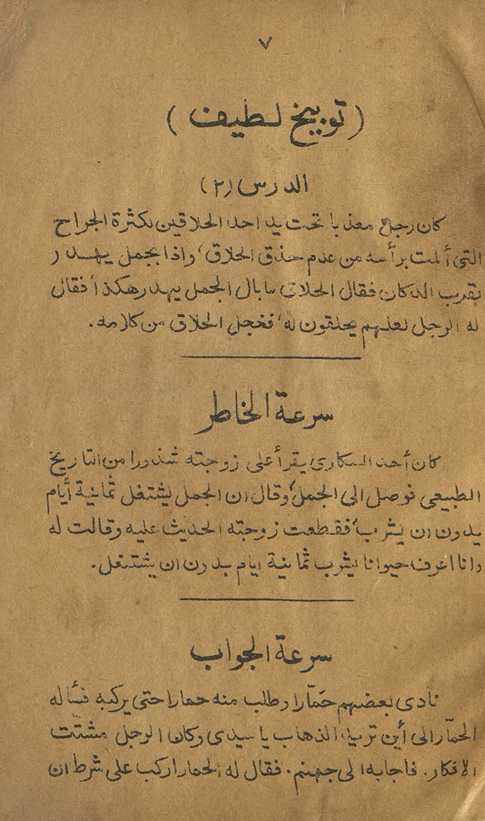 ٧
( توبيخ لطيف )
الدرس (٢)
كان رجل معذبا تحت يد احد الحلاقين لكثرة الجراح
التي ألمت برأسه من عدم حذق الحلاق، واذا بجمل يهدر
بقرب الدكان فقال الحلاق ما بال الجمل يهدر هكذا أ فقال
له الرجل لعلهم يحلقون له، فخجل الحلاق من كلامه.
سرعة الخاطر
كان أحد السكارى يقرأ على زوجته شذورا من التاريخ
الطبيعي فوصل الى الجمل، وقال ان الجمل يشتغل ثمانية أيام
بدون ان يشرب، فقطعت زوجته الحديث عليه وقالت له
وانا اعرف حيوانا يشرب ثمانية ايام بدون ان يشتغل.
سرعة الجواب
نادى بعضهم حمّارا وطلب منه حمارا حتى يركبه فسأله
الحمّار الى أين تريد الذهاب يا سيدي وكان الرجل مشتت
الافكار. فاجابه الى جهنم. فقال له الحمار اركب على شرط ان